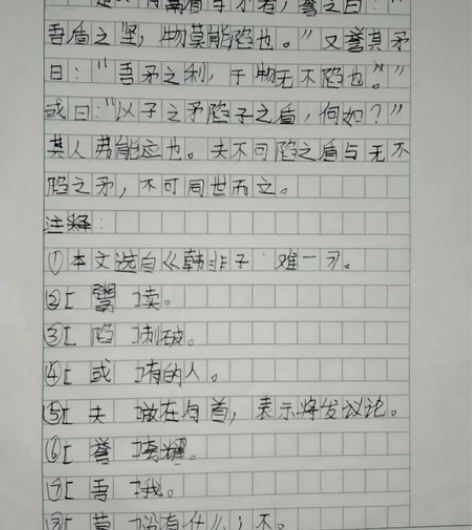 楚人有鬻盾与矛者，誉之曰：“
吾盾之坚，物莫能陷也。”又誉其矛
曰：“吾矛之利，于物无不陷也。”
或曰：“以子之矛陷子之盾，何如？”
其人弗能应也。夫不可陷之盾与无不
陷之矛，不可同世而立。
注释：
①本文选自《韩非子·难一》。
②[鬻]卖。
③[陷]刺破。
④[或]有的人。
⑤[夫]放在句首，表示将发议论。
⑥[誉]夸耀。
⑦[吾]我。
⑧[莫]没有什么；不。